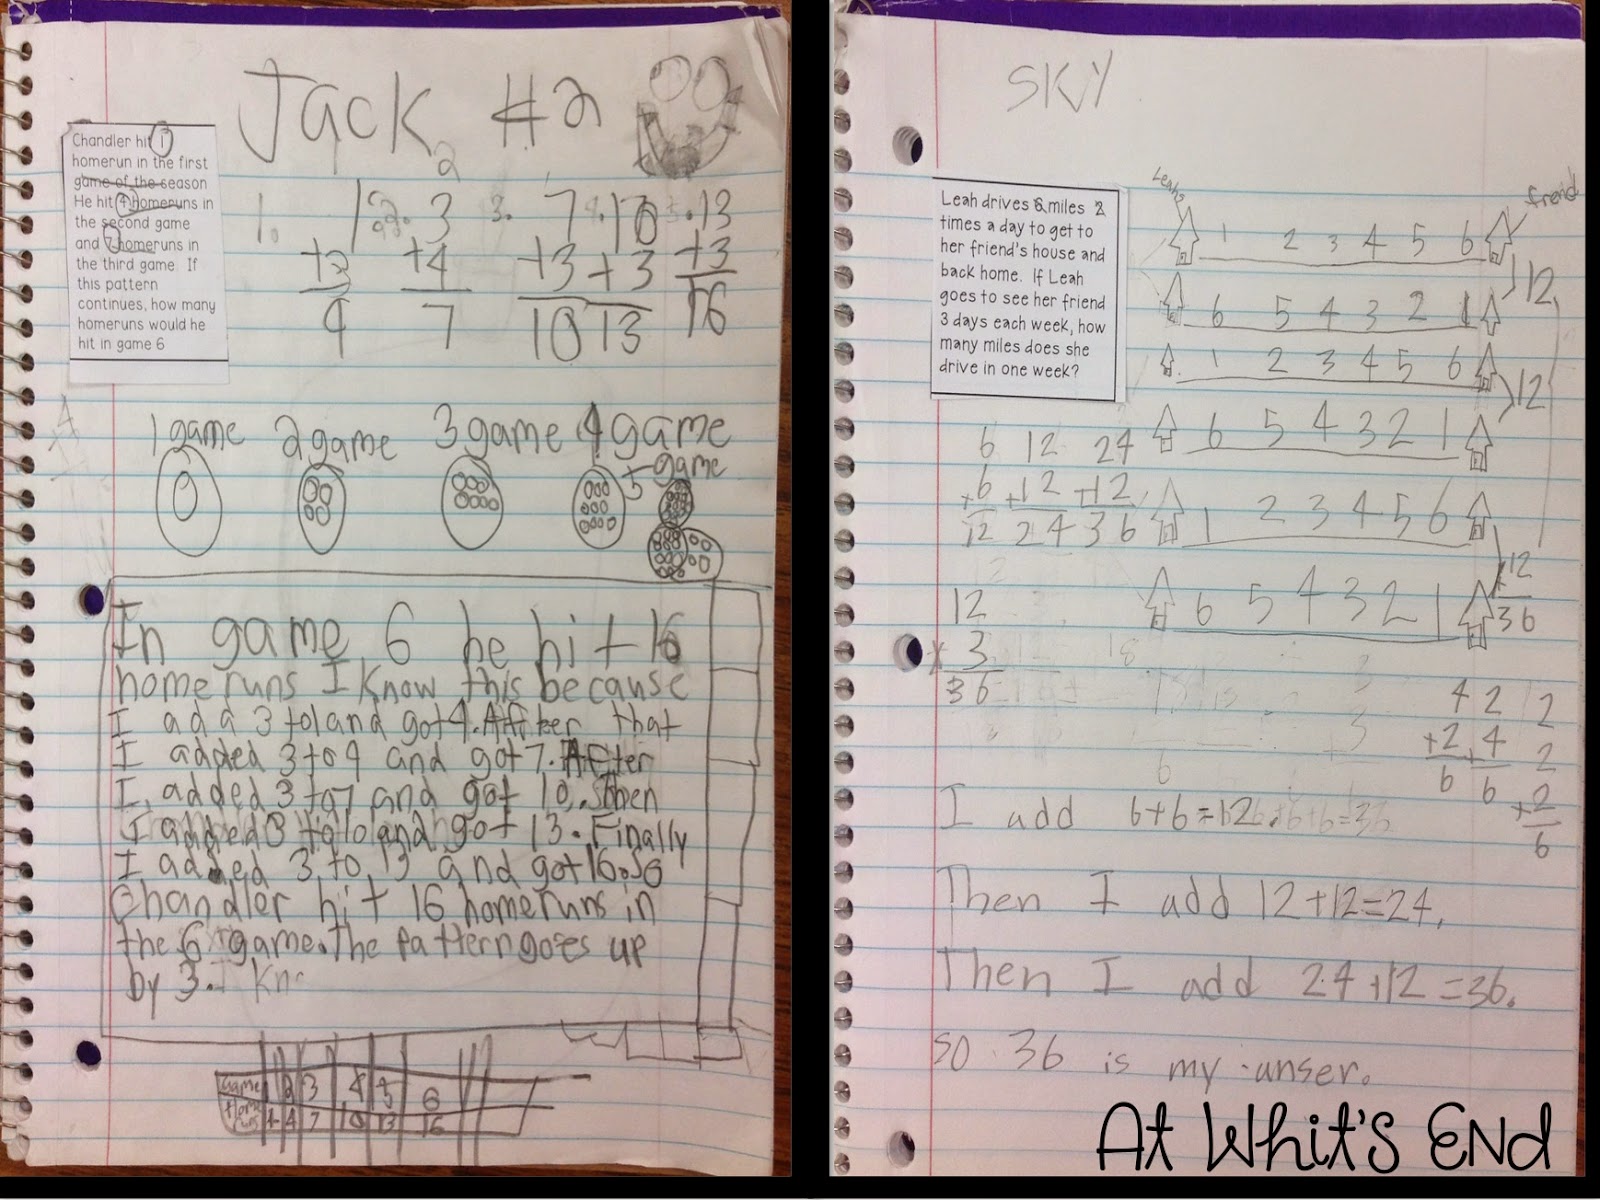 Jack #2
Chandler hit 1
homerun in the first
game of the season
He hit 4 homeruns in
the second game
and 7 homeruns in
the third game. If
this pattern
continues, how many
homeruns would he
hit in game 6
1. 1 2. 3 3. 7 4. 10 5. 13
+3 +4 +3 +3 +3
4 7 10 13 16
1 game 2 game 3 game 4 game
5 game
In game 6 he hit 16
home runs I know this because
I add 3 to 1 and got 4. After that
I added 3 to 4 and got 7. After
I added 3 to 7 and got 10. Then
I added 3 to 10 and got 13. Finally
I added 3 to 13 and got 16. So
Chandler hit 16 homeruns in
the 6 game. The pattern goes up
by 3. I kn
Game 2 3 4 5 6
Home runs 1 4 7 10 13 16
SKY
Leah drives 6 miles 2
times a day to get to
her friend's house and
back home. If Leah
goes to see her friend
3 days each week, how
many miles does she
drive in one week?
Leahs
friend
1 2 3 4 5 6
12
6 5 4 3 2 1
1 2 3 4 5 6
12
6 5 4 3 2 1
1 2 3 4 5 6
12
6 5 4 3 2 1
36
6 12 24
+6 +12 +12
12 24 36
12
x 3
36
4 2 2
+2 +4 2
6 6 +2
6
I add 6+6=12.
Then I add 12+12=24.
Then I add 24+12=36.
so 36 is my unser.
At Whit's End